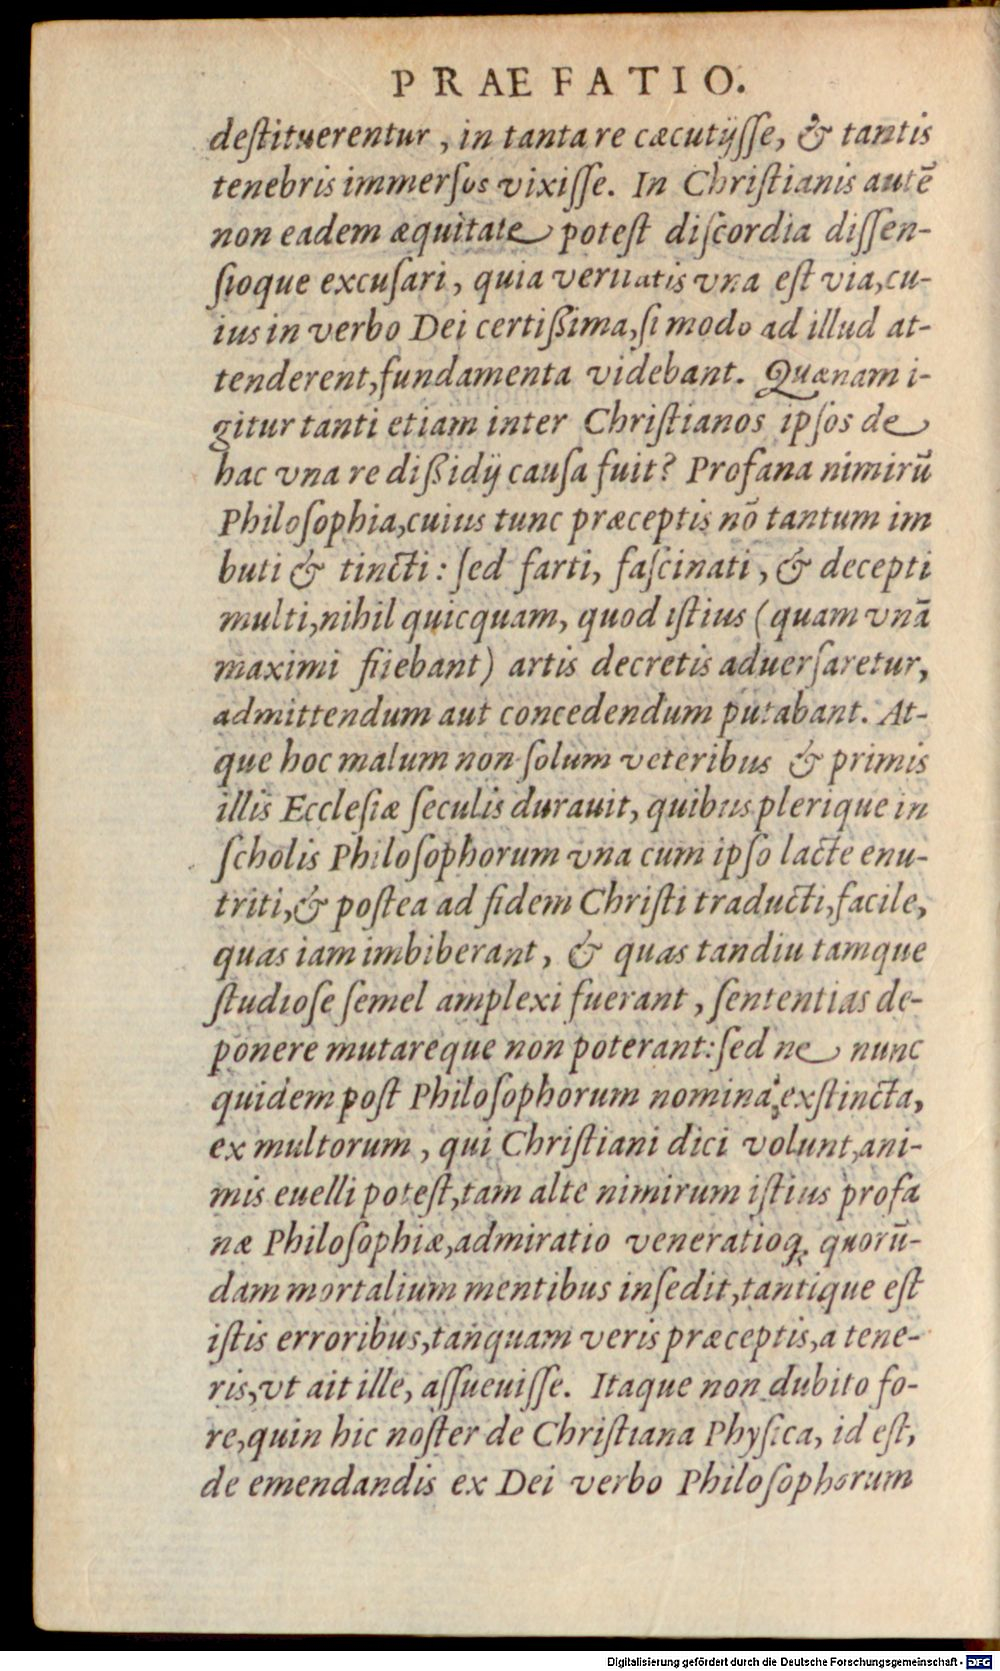 PRAEFATIO.
destituerentur, in tanta re cæcutijsse, & tantis
tenebris immersos vixisse. In Christianis autē
non eadem æquitate potest discordia dissen-
sioque excusari, quia veritatis vna est via, cu-
ius in verbo Dei certißima, si modo ad illud at-
tenderent, fundamenta videbant. Quænam i-
gitur tanti etiam inter Christianos ipsos de
hac vna re dißidij causa fuit? Profana nimirū
Philosophia, cuius tunc præceptis nō tantum im
buti & tincti: sed farti, fascinati, & decepti
multi, nihil quicquam, quod istius (quam vnā
maximi fiiebant) artis decretis aduersaretur,
admittendum aut concedendum putabant. At-
que hoc malum non solum veteribus & primis
illis Ecclesiæ seculis durauit, quibus plerique in
scholis Philosophorum vna cum ipso lacte enu-
triti, & postea ad fidem Christi traducti, facile,
quas iam imbiberant, & quas tandiu tamque
studiose semel amplexi fuerant, sententias de-
ponere mutareque non poterant: sed ne nunc
quidem post Philosophorum nomina exstincta,
ex multorum, qui Christiani dici volunt, ani-
mis euelli potest, tam alte nimirum istius profa
næ Philosophiæ, admiratio veneratioq. quorū-
dam mortalium mentibus insedit, tantique est
istis erroribus, tanquam veris præceptis, a tene-
ris, vt ait ille, assueuisse. Itaque non dubito fo-
re, quin hic noster de Christiana Physica, id est,
de emendandis ex Dei verbo Philosophorum
Digitalisierung gefördert durch die Deutsche Forschungsgemeinschaft - DFG